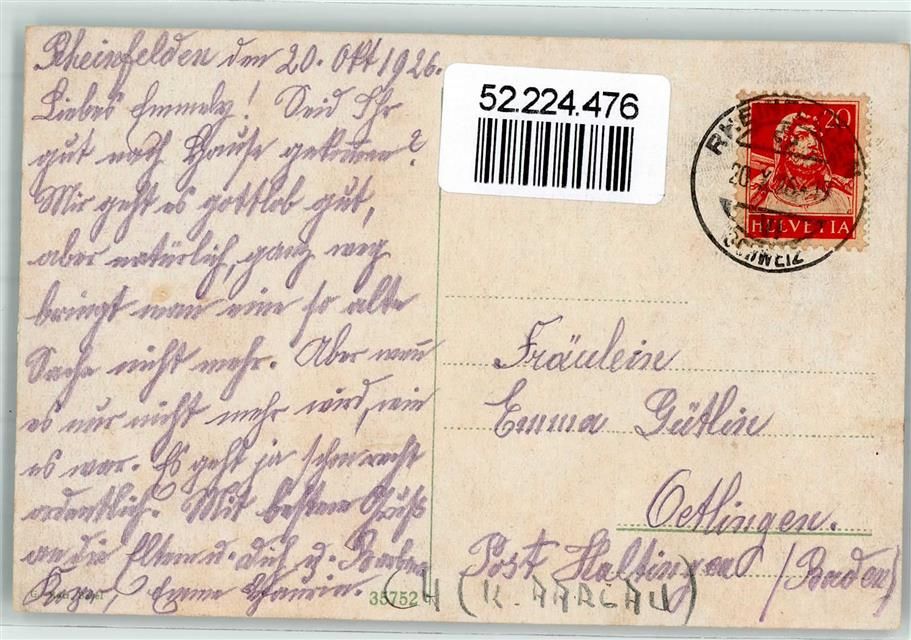 Rheinfelden den 20. Okt 1926.
Liebes Emmely! Seid Ihr
gut nach Hause gekommen?
Mir geht es gottlob gut,
aber natürlich, ganz weg
bringt man eine so alte
Sache nicht mehr. Aber wenn
es nur nicht mehr wird, wie
es war. Es geht ja schon recht
ordentlich. Mit bestem Gruß
an die Eltern u. Dich u.
52.224.476
20
HELVETIA
SCHWEIZ
Fräulein
Emma Gütlin
Oetlingen.
Post Haltingen (Baden)
35752
CH (K. AARGAU)